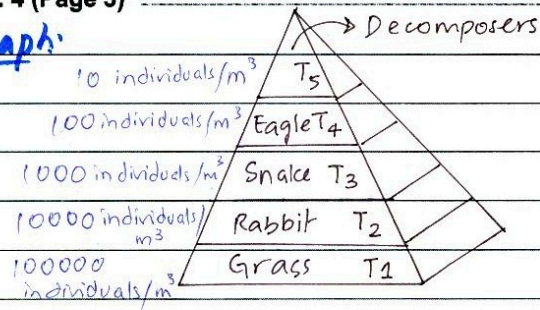 4 (Page 5)
aph:
Decomposers
10 individuals/m³ T5
100 individuals/m³ Eagle T4
1000 individuals/m³ Snake T3
10000 individuals/m³ Rabbit T2
100000 individuals/m³ Grass T1